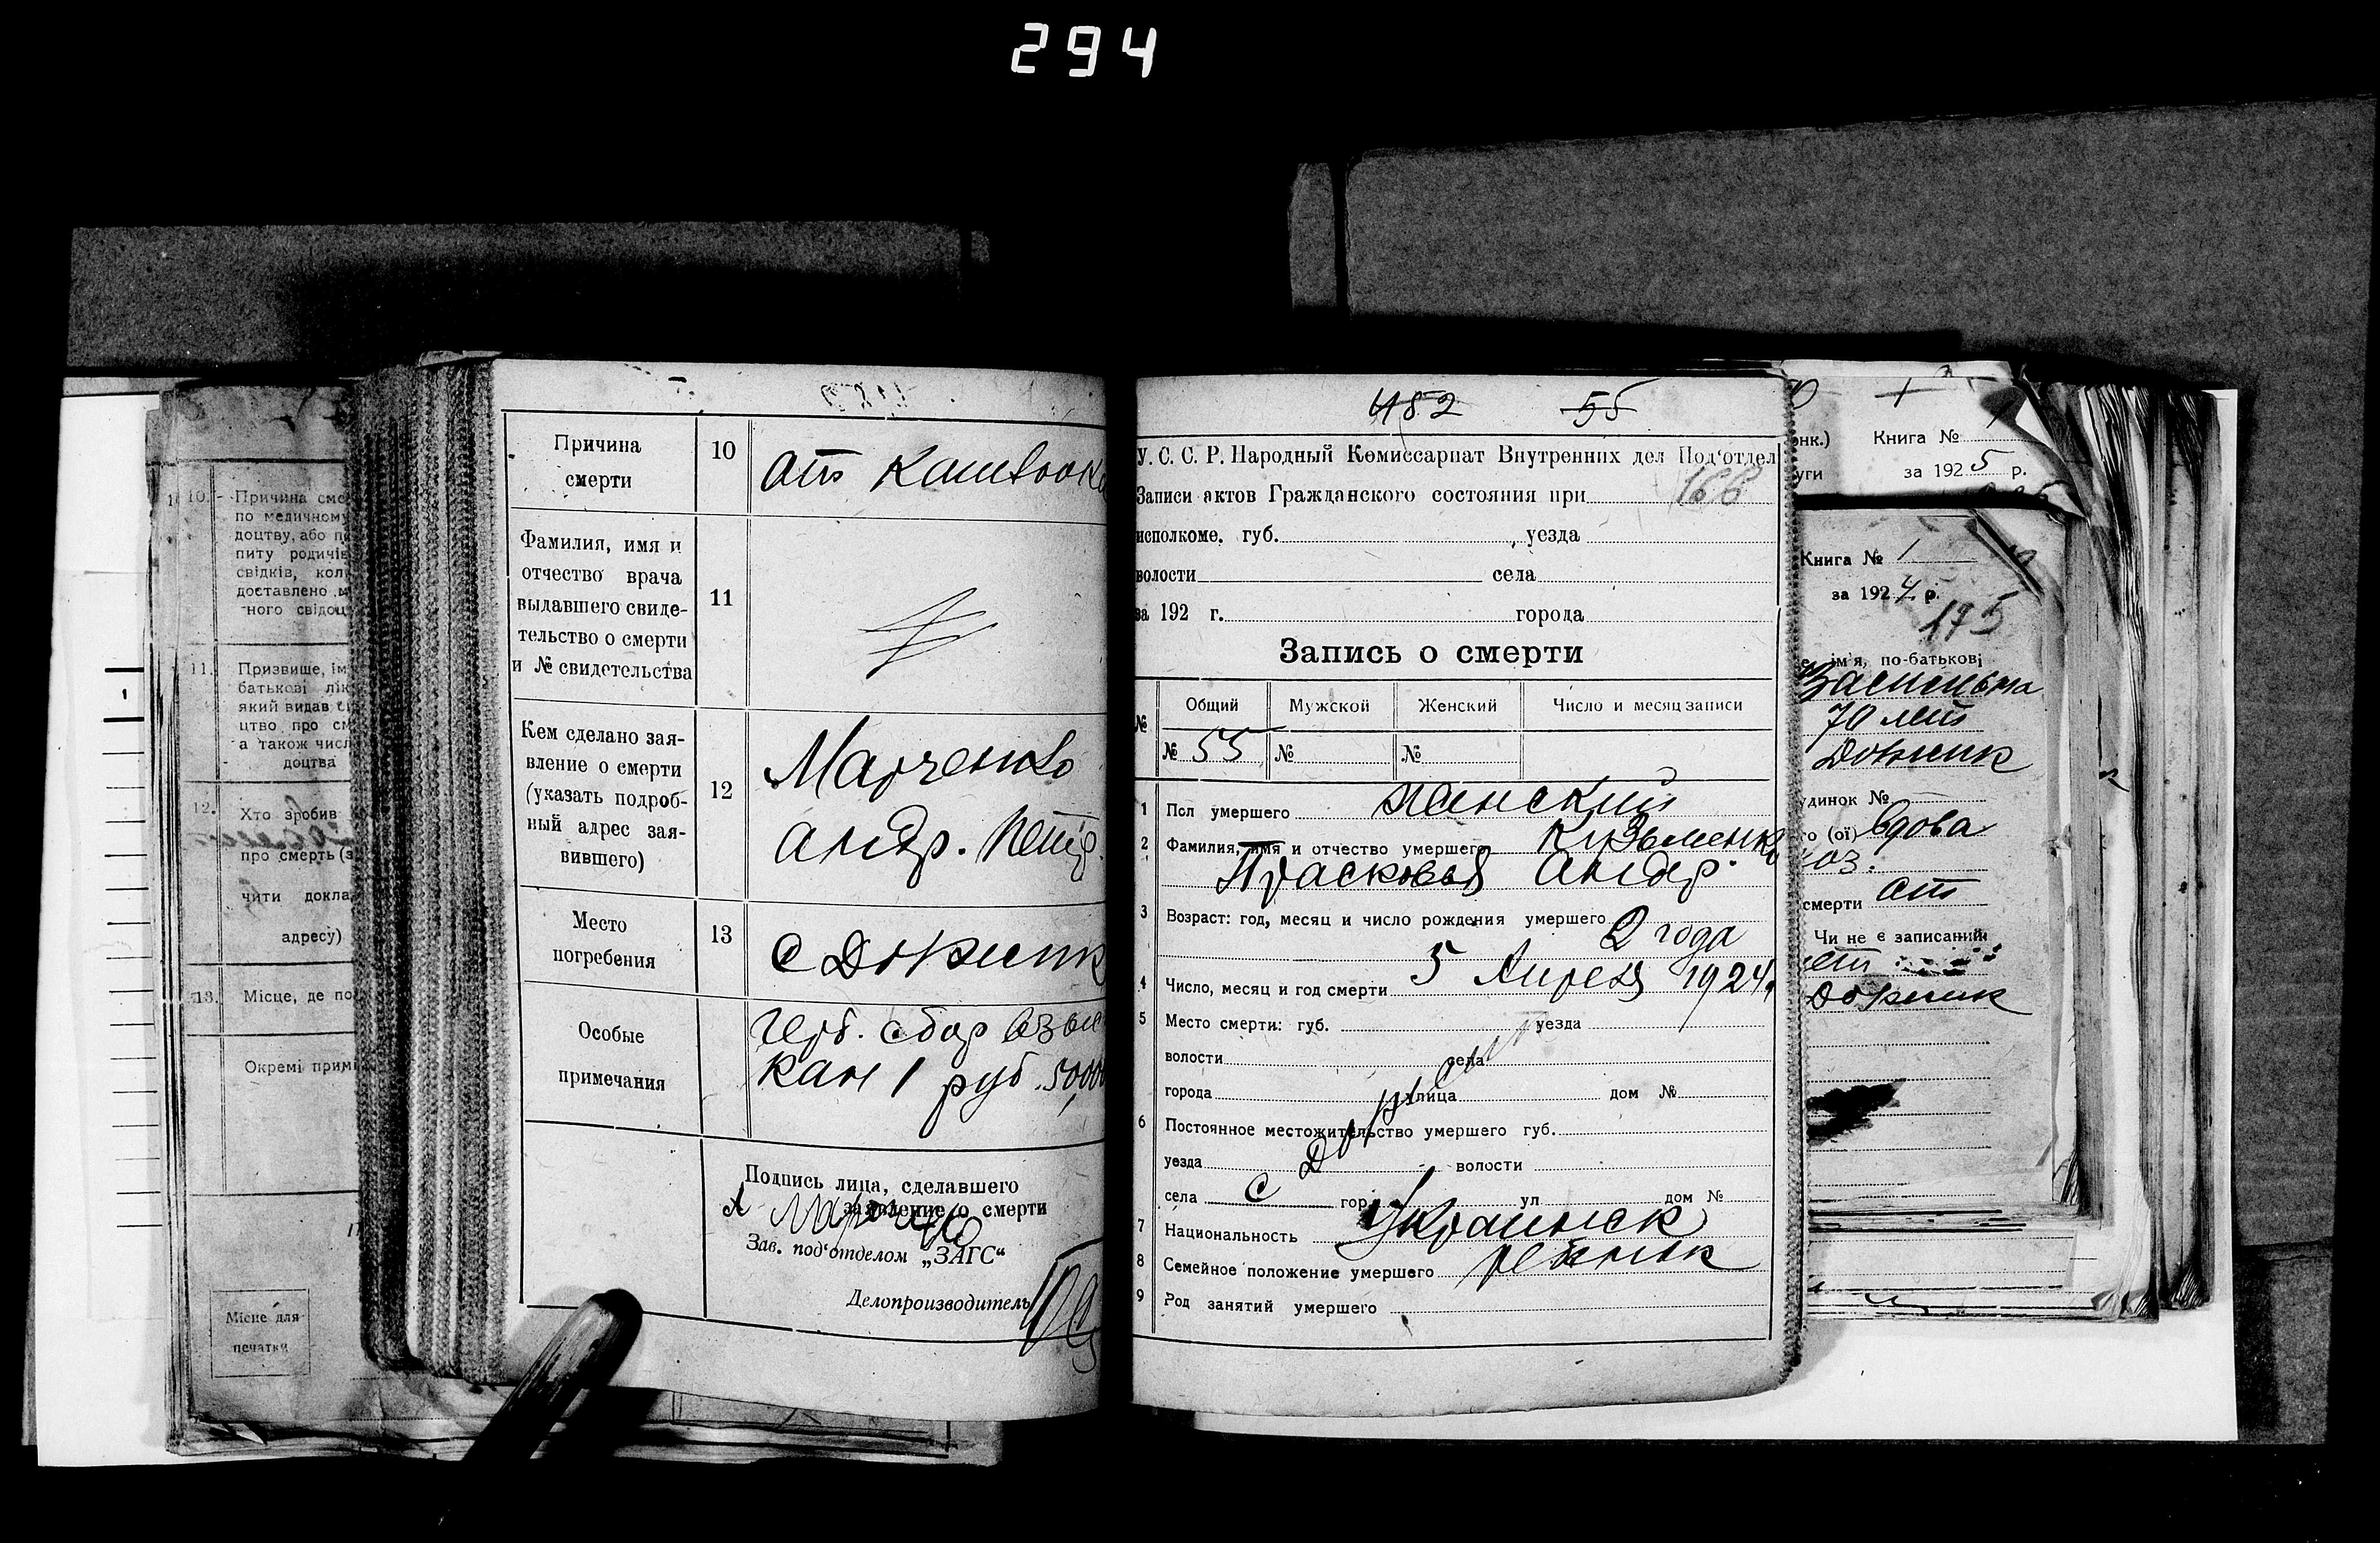 294
Причина смерти
10
от
Фамилия, имя и отчество врача выдавшего свиде-
тельство о смерти и № свидетельства
11
Кем сделано зая-
вление о смерти
(указать подроб-
ный адрес зая-
вившего)
12
Марченко
Андр. Петр.
Место погребения
13
с
Особые примечания
герб. сбор взыс
кан 1 руб. 50,000
Подпись лица, сделавшего
заявление о смерти
Зав. под'отделом „ЗАГС“
Делопроизводитель
10.
Причина сме
по медичному
доцтву, або п
питу родичів
свідків, кол
доставлено м
ного свідоц
11.
Призвище, ім
батькові лік
який видав с
цтво про см
а також числ
доцтва
12.
Хто зробив
про смерть (з
чити докла
адресу)
13.
Місце, де по
Окремі прим
Місце для
печатки
482 55
У. С. С. Р. Народный Комиссариат Внутренних дел Под'отдел
Записи актов Гражданского состояния при
исполкоме. губ. уезда
волости села
за 192 г. города
Запись о смерти
№ Общий Мужской Женский Число и месяц записи
№ 55 № №
1 Пол умершего женский
2 Фамилия, имя и отчество умершего Кузьменко
Прасковья Андр.
3 Возраст: год, месяц и число рождения умершего
2 года
4 Число, месяц и год смерти 5 Апреля 1924
5 Место смерти: губ. уезда
волости села
города улица дом №
6 Постоянное местожительство умершего губ.
уезда волости
села с гор. ул дом №
7 Национальность Украинск
8 Семейное положение умершего ребенок
9 Род занятий умершего
онк.) Книга № 1
уги за 1925 р.
Книга № 1
за 1924 р.
175
ім'я, по-батькові
70 лет
удинок №
о (ої) Вдова
смерти от
Чи не є записаний